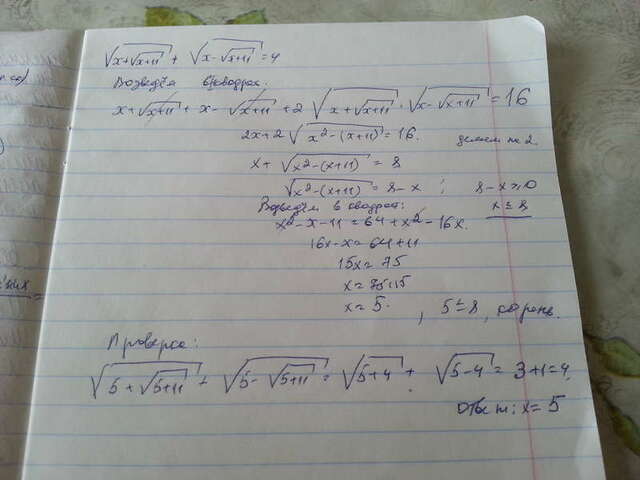 √(x+√(x+11)) + √(x-√(x+11)) = 4
Возведём в квадрат:
x+√(x+11) + x-√(x+11) + 2√(x+√(x+11)) · √(x-√(x+11)) = 16
2x+2√(x²-(x+11)) = 16. делим на 2.
x+√(x²-(x+11)) = 8
√(x²-(x+11)) = 8-x ; 8-x≥0
Возведём в квадрат: x≤8
x²-x-11=64+x²-16x.
16x-x=64+11
15x=75
x=75:15
x=5. , 5≤8, корень.
Проверка:
√(5+√(5+11)) + √(5-√(5+11)) = √(5+4) + √(5-4) = 3+1=4.
Ответ: x=5